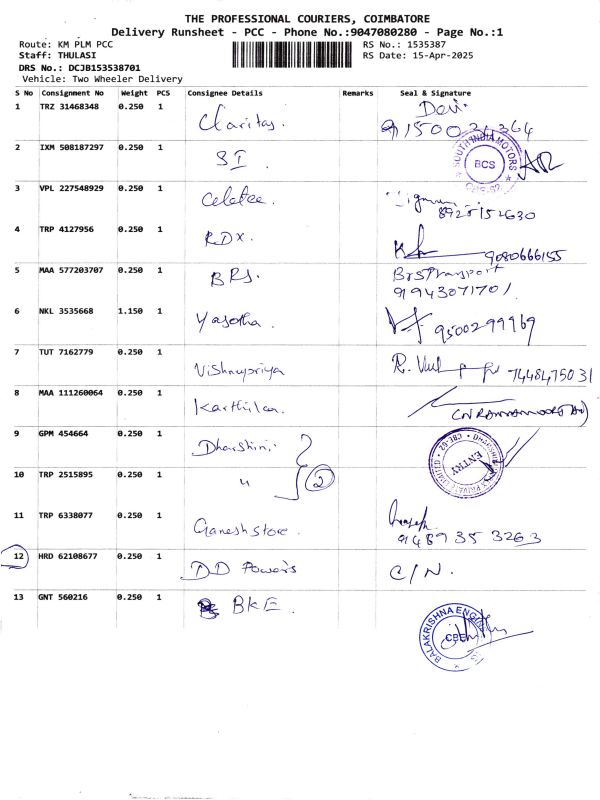 THE PROFESSIONAL COURIERS, COIMBATORE
Delivery Runsheet - PCC - Phone No.:9047080280 - Page No.:1
Route: KM PLM PCC
Staff: THULASI
DRS No.: DCJB153538701
Vehicle: Two Wheeler Delivery
RS No.: 1535387
RS Date: 15-Apr-2025
S No Consignment No Weight PCS Consignee Details Remarks Seal & Signature
1 TRZ 31468348 0.250 1 Claritas. Devi.
2 IXM 508187297 0.250 1 SI SOUTH INDIA MOTORS BCS
3 VPL 227548929 0.250 1
4 TRP 4127956 0.250 1 RDX. 9080666155
5 MAA 577203707 0.250 1 BRS. BrsTransport
91943071701
6 NKL 3535668 1.150 1 Yasotha. 9500299969
7 TUT 7162779 0.250 1 Vishnupriya 7448475031
8 MAA 111260064 0.250 1
9 GPM 454664 0.250 1 Dharshini. ENTRY
10 TRP 2515895 0.250 1 〃 2
11 TRP 6338077 0.250 1 Ganesh Store. 9489353263
12 HRD 62108677 0.250 1 DD Powers C/N.
13 GNT 560216 0.250 1 BKE. BALAKRISHNA CBE